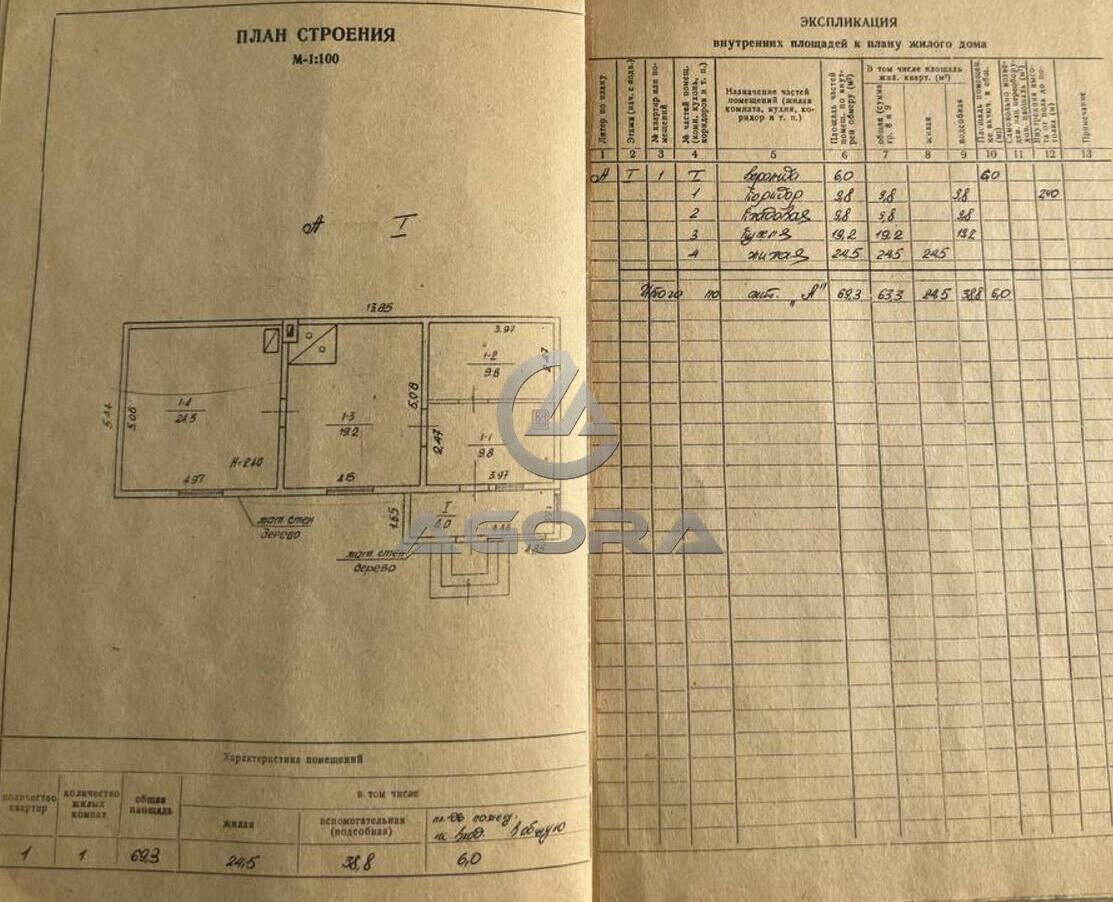 ПЛАН СТРОЕНИЯ
М-1:100
А I
13.85
3.97
1-2
9.8
5.44
5.08
1-4
24.5
1-3
19.2
5.08
2.47
2.47
1-1
9.8
Н=2.40
4.97
3.97
I
6.0
1.65
4.85
мат. стен
дерево
мат. стен
дерево
AGORA
Характеристика помещений
количество квартир
количество жилых комнат
общая площадь
в том числе
жилая
вспомогательная (подсобная)
1 1 69,3 24,5 38,8 6,0
ЭКСПЛИКАЦИЯ
внутренних площадей к плану жилого дома
Литер по плану
Этажи (нач. с подв.)
№ квартир или помещений
№ частей помещ. (комн. кухонь, коридоров и т. п.)
Назначение частей помещений (жилая комната, кухня, коридор и т. п.)
Площадь частей помещ. по внутрен обмеру (м²)
В том числе площадь жил. кварт. (м²)
общая (сумма гр. 8 и 9
жилая
подсобная
Примечание
1 2 3 4 5 6 7 8 9 10 11 12 13
А I 1 I веранда 6,0 6,0
1 Коридор 9,8 9,8 9,8 240
2 Кладовая 9,8 9,8 9,8
3 Кухня 19,2 19,2 19,2
4 жилая 24,5 24,5 24,5
Итого по лит. „А" 69,3 63,3 24,5 38,8 6,0